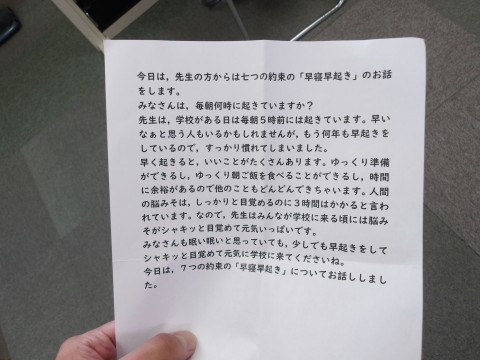 今日は，先生の方からは七つの約束の「早寝早起き」のお話
をします。
みなさんは，毎朝何時に起きていますか？
先生は，学校がある日は毎朝５時前には起きています。早い
なぁと思う人もいるかもしれませんが，もう何年も早起きを
しているので，すっかり慣れてしまいました。
早く起きると，いいことがたくさんあります。ゆっくり準備
ができるし，ゆっくり朝ご飯を食べることができるし，時間
に余裕があるので他のこともどんどんできちゃいます。人間
の脳みそは，しっかりと目覚めるのに３時間はかかると言わ
れています。なので，先生はみんなが学校に来る頃には脳み
そがシャキッと目覚めて元気いっぱいです。
みなさんも眠い眠いと思っていても，少しでも早起きをして
シャキッと目覚めて元気に学校に来てくださいね。
今日は，７つの約束の「早寝早起き」についてお話ししまし
た。